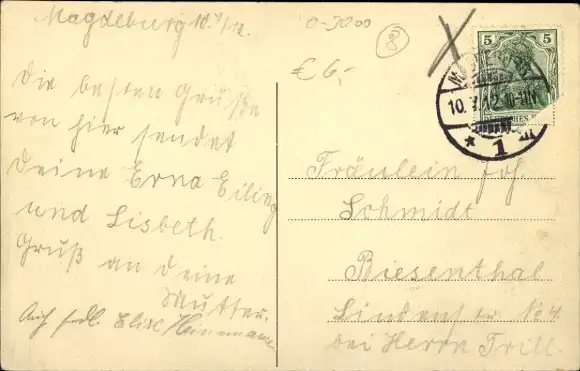 Magdeburg 10.7/12.
Die besten Grüße
von hier sendet
deine Erna Eiling
und Lisbeth.
Gruß an deine
Mutter.
Auch frdl. Elise Heinemann
0-3000
8
€ 6,-
5
10.7.12.10-11N
DEUTSCHES
* 1
Fräulein Joh.
Schmidt
Biesenthal
Lindenstr No 4.
bei Herrn Trill.